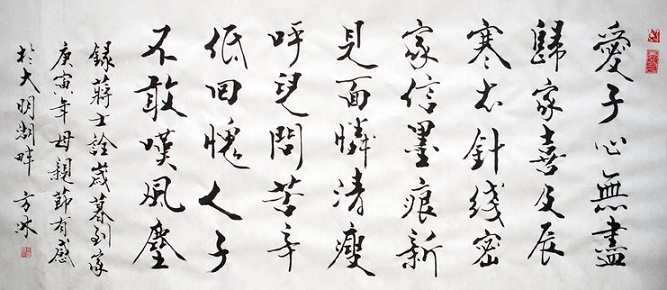 愛子心無盡
歸家喜及辰
寒衣針綫密
家信墨痕新
見面憐清瘦
呼兒問苦辛
低回愧人子
不敢嘆風塵
錄蔣士詮歲暮到家
庚寅年母親節有感
於大明湖畔 方冰